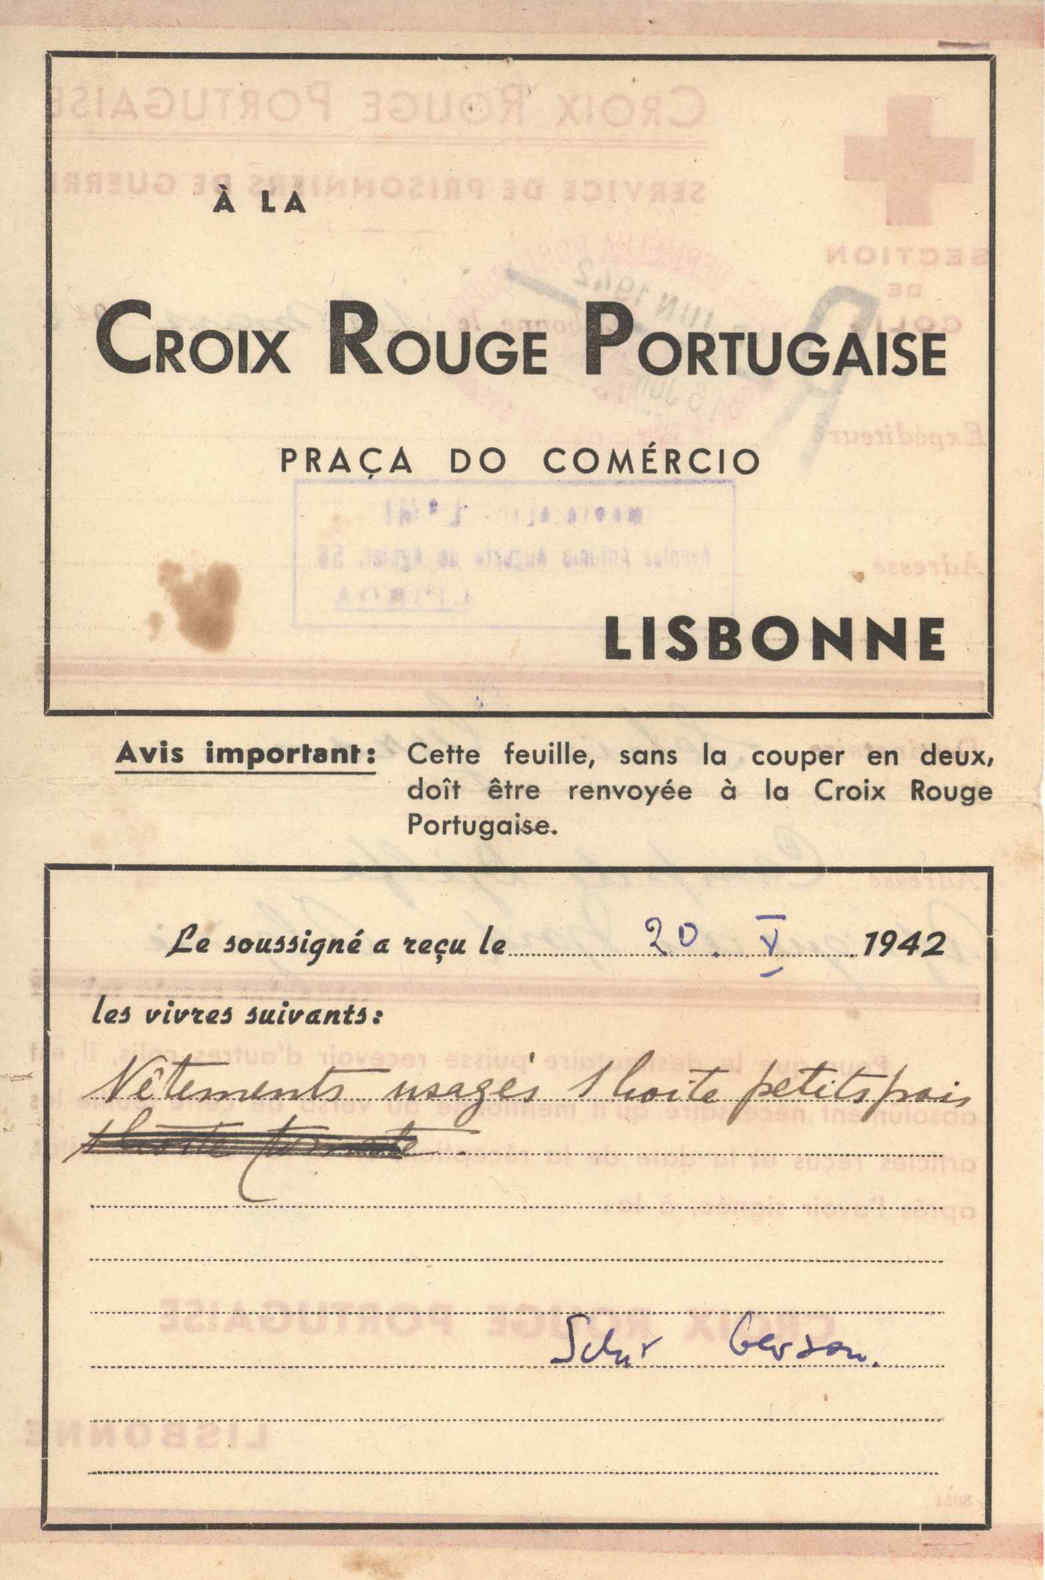 À LA
CROIX ROUGE PORTUGAISE
PRAÇA DO COMÉRCIO
LISBONNE
Avis important: Cette feuille, sans la couper en deux,
doît être renvoyée à la Croix Rouge
Portugaise.
Le soussigné a reçu le 20. V 1942
les vivres suivants:
Vêtements usagés 1 boite petits pois
1 boite tomate.
Schur Gerson.